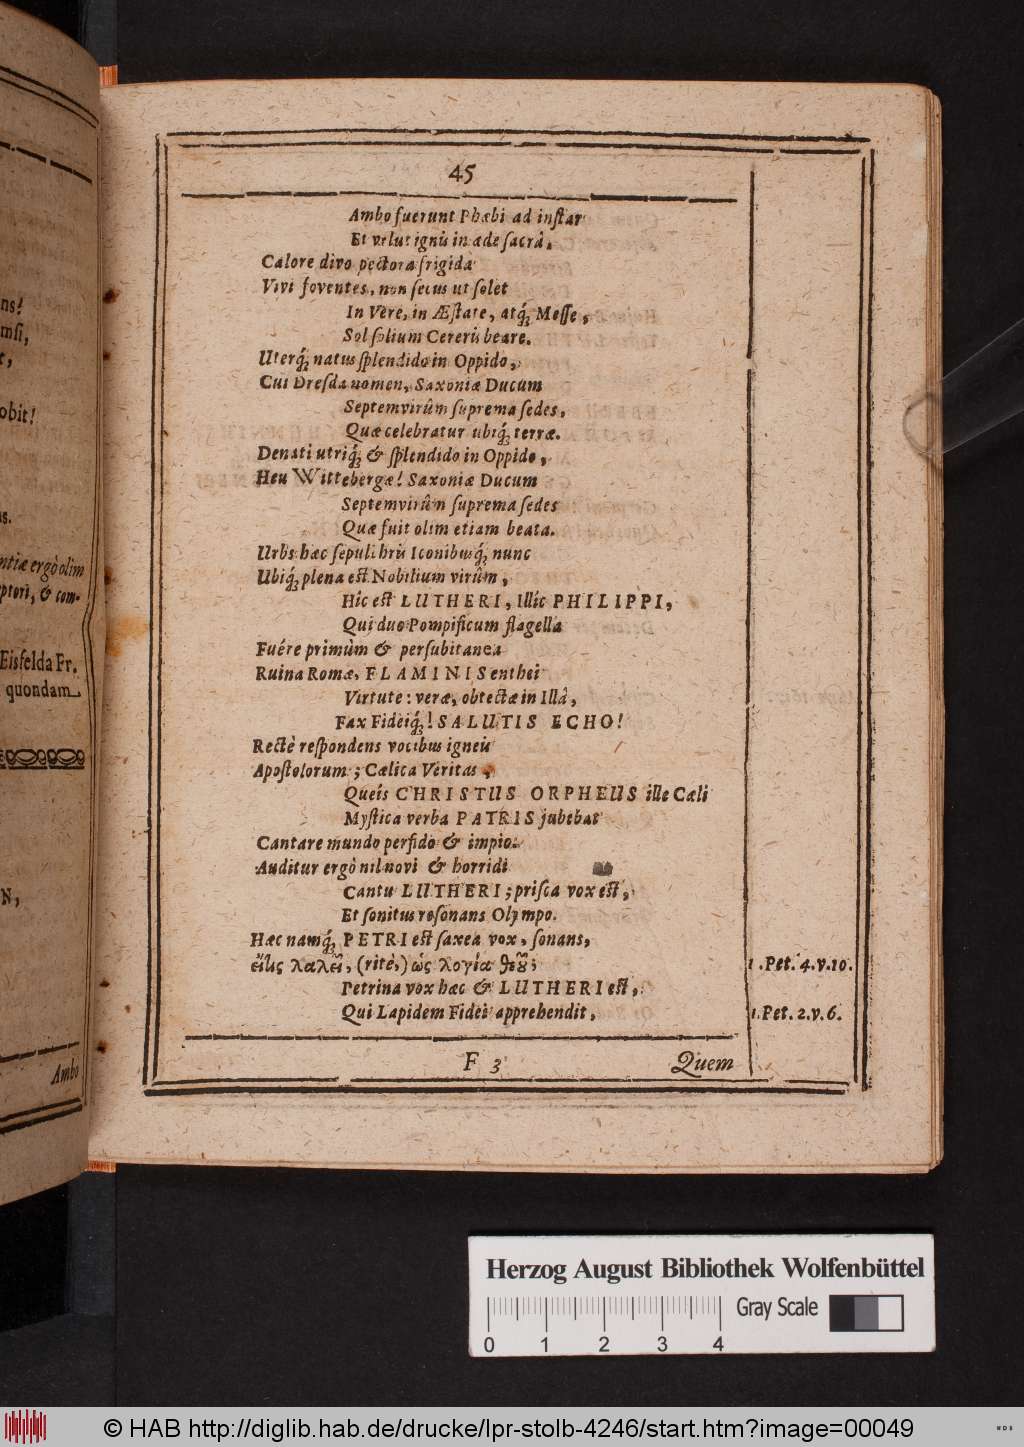 ns!
msi,
t,
obit!
us.
ntiæ ergò olim
ptori, & com-
Eisfelda Fr.
quondam
N,
Ambo
45
Ambo fuerunt Phœbi ad instar
Et velut ignis in æde sacrâ,
Calore divo pectora frigida
Vivi foventes, non secus ut solet
In Vere, in Æstate, atq́; Messe,
Sol solium Cereris beare.
Uterq́; natus splendido in Oppido,
Cui Dresda nomen, Saxoniæ Ducum
Septemvirûm suprema sedes,
Quæ celebratur ubiq́; terræ.
Denati utriq́; & splendido in Oppido,
Heu Wittebergæ! Saxoniæ Ducum
Septemvirûm suprema sedes
Quæ fuit olim etiam beata.
Urbs hæc sepulchris Iconibusq́; nunc
Ubiq́; plena est Nobilium virûm,
Hic est LUTHERI, Illic PHILIPPI,
Qui duo Pompificum flagella
Fuére primùm & persubitanea
Ruina Romæ, FLAMINIS enthei
Virtute: veræ, obtectæ in Illâ,
Fax Fideiq́;! SALUTIS ECHO!
Rectè respondens vocibus igneis
Apostolorum; Cælica Veritas,
Queis CHRISTUS ORPHEUS ille Cæli
Mystica verba PATRIS jubebat
Cantare mundo perfido & impio.
Auditur ergò nil novi & horridi
Cantu LUTHERI; prisca vox est,
Et sonitus resonans Olympo.
Hæc namq́; PETRI est saxea vox, sonans,
εἴτις λαλεῖ, (ritè,) ὡς λογία θεοῦ; 1. Pet. 4. v. 10.
Petrina vox hæc & LUTHERI est,
Qui Lapidem Fidei apprehendit, 1. Pet. 2. v. 6.
F 3 Quem
Herzog August Bibliothek Wolfenbüttel
Gray Scale
0 1 2 3 4
© HAB http://diglib.hab.de/drucke/lpr-stolb-4246/start.htm?image=00049